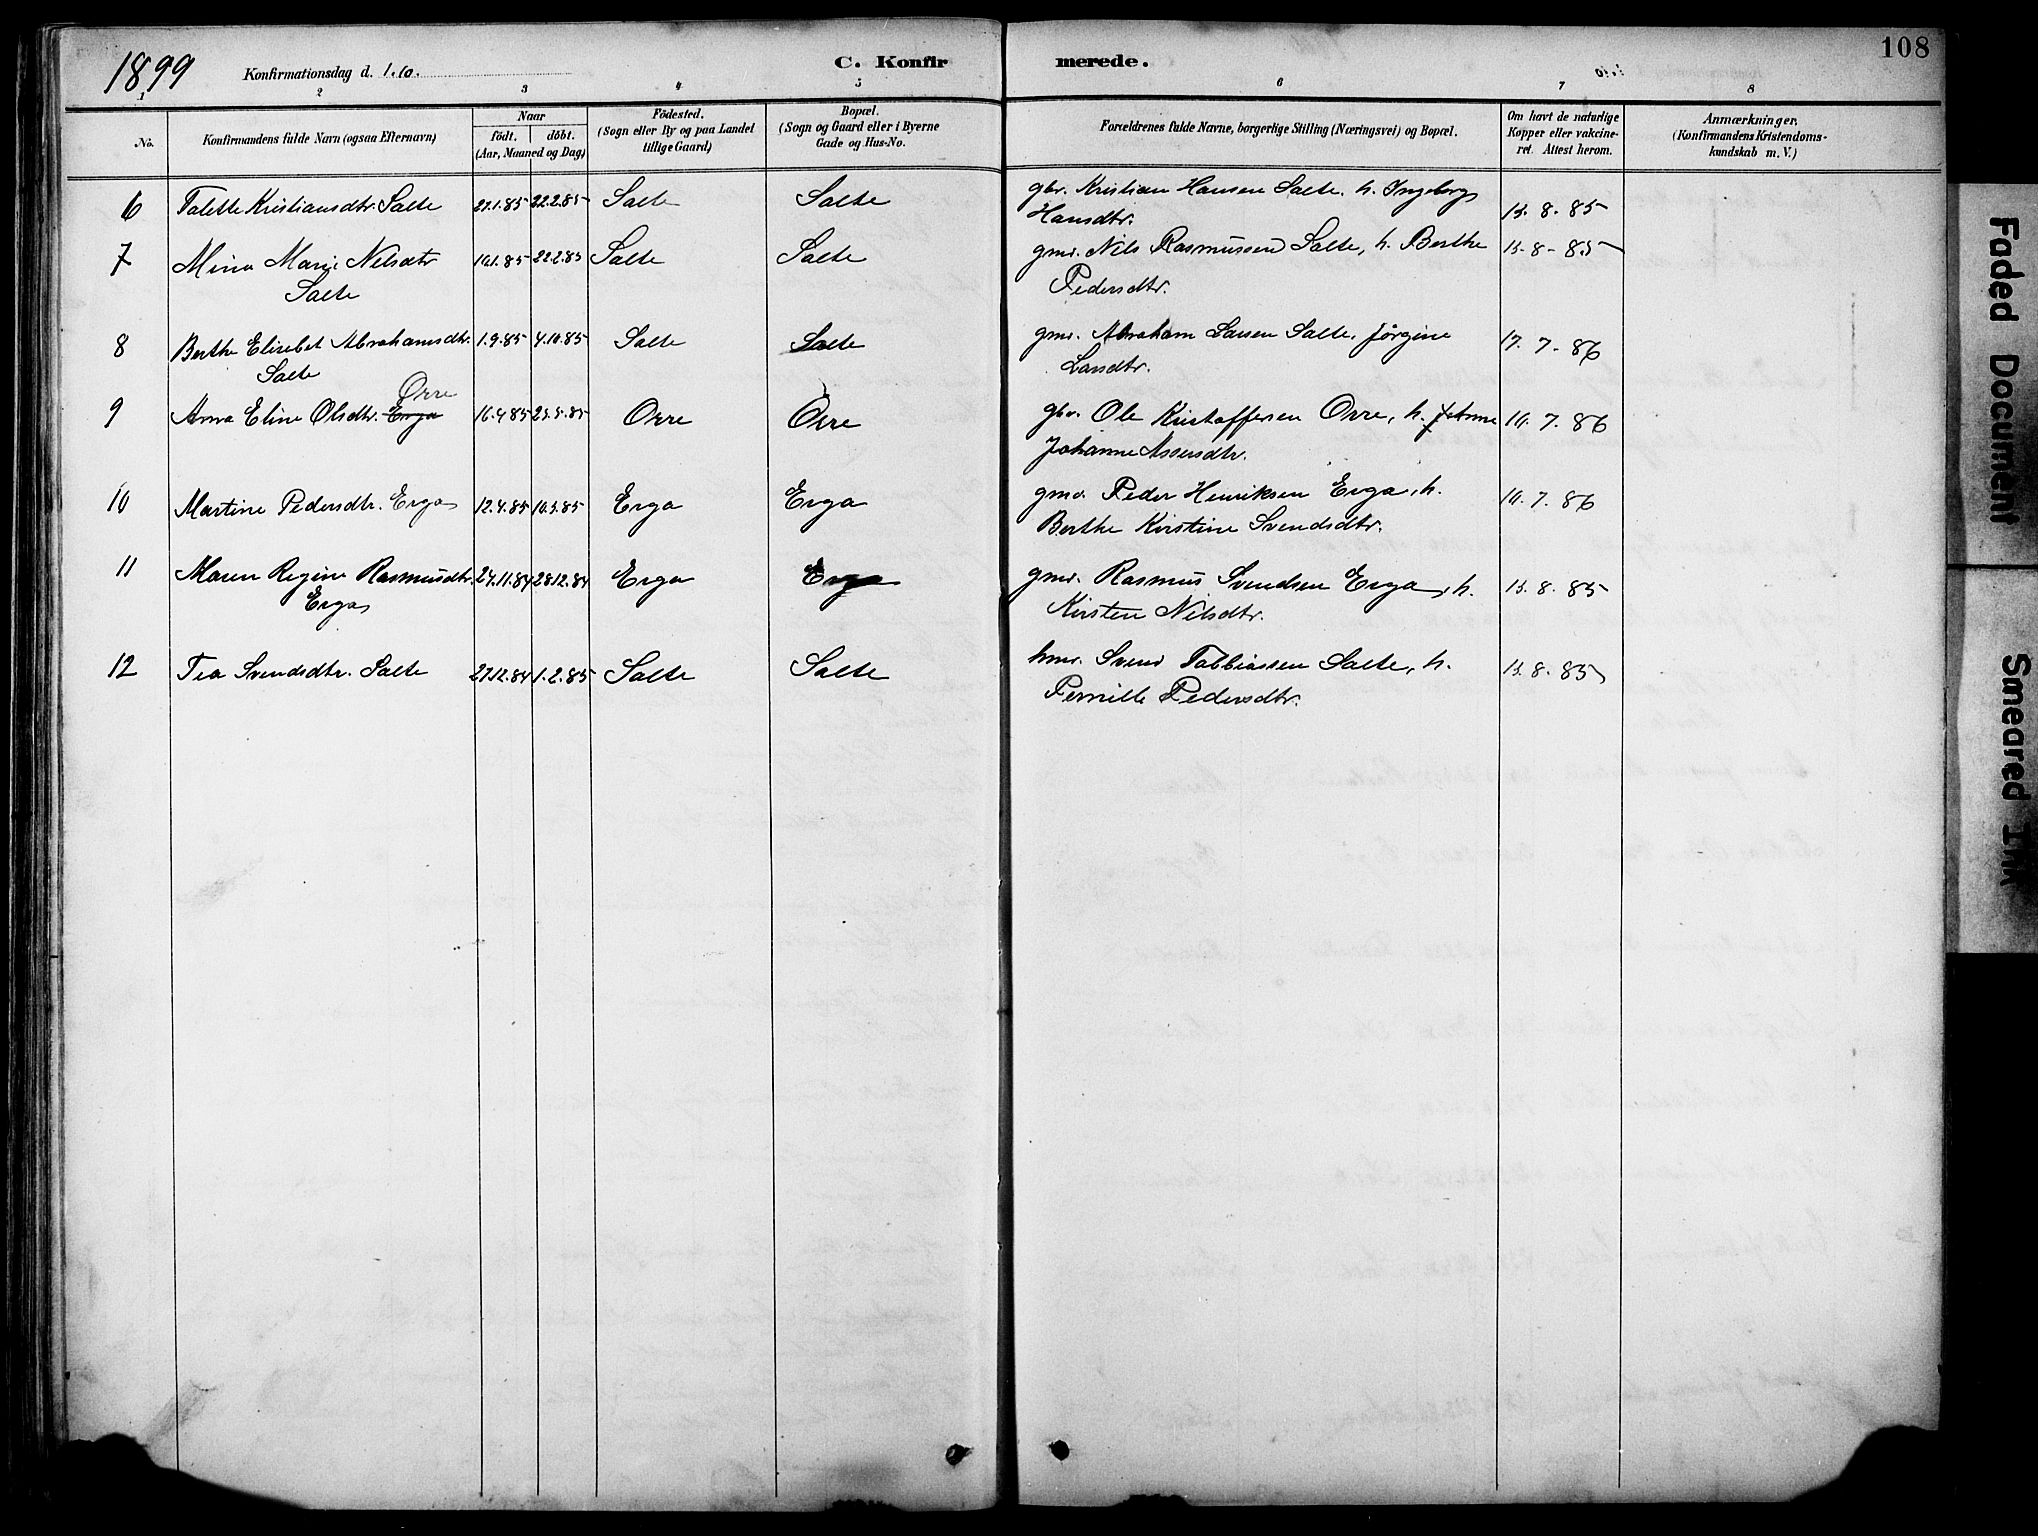 108
1899 Konfirmationsdag d. 1.10. C. Konfirmerede.
1 2 3 4 5 6 7 8
No. Konfirmandens fulde Navn (ogsaa Efternavn) Naar födt. döbt. (Aar, Maaned og Dag) Födested. (Sogn eller By og paa Landet tillige Gaard) Bopæl. (Sogn og Gaard eller i Byerne Gade og Hus-No. Forældrenes fulde Navne, borgerlige Stilling (Næringsvei) og Bopæl. Om havt de naturlige Kopper eller vakcineret. Attest herom. Anmærkninger. (Konfirmandens Kristendomskundskab m. V.)
6 Talette Kristiansdtr. Salte 22.2.85 Salte Salte gbr. Kristian Hansen Salte, h. Ingeborg 13.8.85
Hansdtr.
7 Mina Marie Nelsdtr 22.2.85 Salte Salte gmd. Nils Rasmussen Salte, h. Berthe 13-8-85
Salte Pedersdtr.
8 Berthe Elisebet Abrahamsdtr. 1.9.85 4.10.85 Salte Salte gmd. Abraham Larsen Salte, Jørgine 17.7.86
Salte Larsdtr.
Orre
9 Anna Eline Olsdtr. Erga 16.4.85 25.5.85 Orre Orre gbr. Ole Kristoffersen Orre, h. 10.7.86
Johanne Assersdtr.
10 Martine Pedersdtr. Erga 12.4.85 10.5.85 Erga Erga gmd. Peder Henriksen Erga, h. 10.7.86
Berthe Kirstine Svendsdtr.
11 Maren Regine Rasmusdtr. 27.11.84 28.12.84 Erga Erga gmd. Rasmus Svendsen Erga, h. 13.8.85
Erga Kirsten Nilsdtr.
12 Tea Svendsdtr. Salte 27.12.84 1.2.85 Salte Salte hmd. Svend Tobbiassen Salte, h. 13.8.85
Pernille Pedersdtr.
Faded Document
Smeared Ink